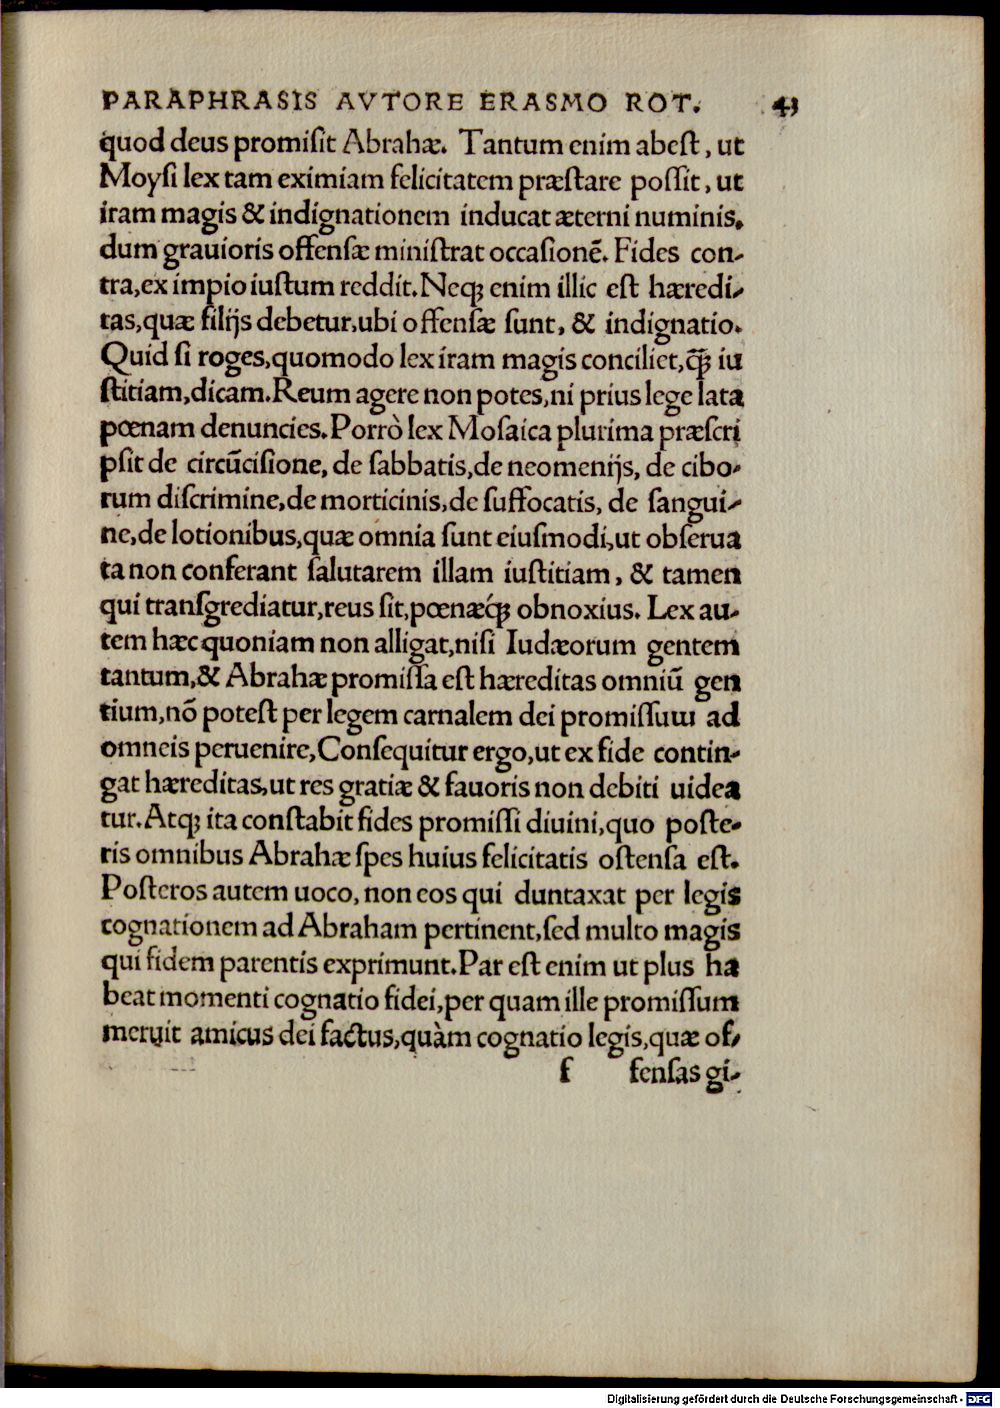 PARAPHRASIS AVTORE ERASMO ROT. 43
quod deus promiſit Abrahæ. Tantum enim abeſt, ut
Moyſi lex tam eximiam felicitatem præſtare poſſit, ut
iram magis & indignationem inducat æterni numinis,
dum grauioris offenſæ miniſtrat occaſionẽ. Fides con-
tra, ex impio iuſtum reddit. Neqꝫ enim illic eſt hæredi-
tas, quæ filijs debetur, ubi offenſæ ſunt, & indignatio.
Quid ſi roges, quomodo lex iram magis conciliet, q̃ꝫ iu
ſtitiam, dicam. Reum agere non potes, ni prius lege lata
pœnam denuncies. Porrò lex Moſaica plurima præſcri
pſit de circũciſione, de ſabbatis, de neomenijs, de cibo-
rum diſcrimine, de morticinis, de ſuffocatis, de ſangui-
ne, de lotionibus, quæ omnia ſunt eiuſmodi, ut obſerua
ta non conferant ſalutarem illam iuſtitiam, & tamen
qui tranſgrediatur, reus ſit, pœnæq́ꝫ obnoxius. Lex au-
tem hæc quoniam non alligat, niſi Iudæorum gentem
tantum, & Abrahæ promiſſa eſt hæreditas omniũ gen
tium, nõ poteſt per legem carnalem dei promiſſum ad
omneis peruenire, Conſequitur ergo, ut ex fide contin-
gat hæreditas, ut res gratiæ & fauoris non debiti uidea
tur. Atqꝫ ita conſtabit fides promiſſi diuini, quo poſte-
ris omnibus Abrahæ ſpes huius felicitatis oſtenſa eſt.
Poſteros autem uoco, non eos qui duntaxat per legis
cognationem ad Abraham pertinent, ſed multo magis
qui fidem parentis exprimunt. Par eſt enim ut plus ha
beat momenti cognatio fidei, per quam ille promiſſum
meruit amicus dei factus, quàm cognatio legis, quæ of-
f fenſas gi-
Digitalisierung gefördert durch die Deutsche Forschungsgemeinschaft - DFG